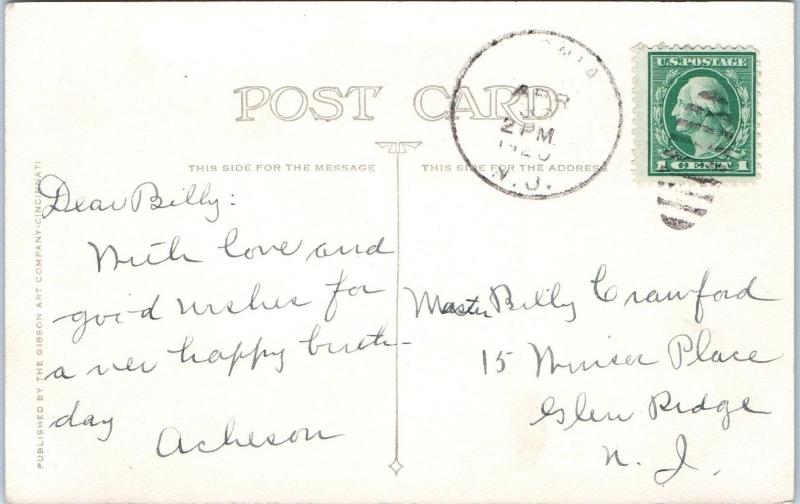 POST CARD
THIS SIDE FOR THE MESSAGE
THIS SIDE FOR THE ADDRESS
PUBLISHED BY THE GIBSON ART COMPANY-CINCINNATI
Dear Billy:
With love and
good wishes for
a ver happy birth-
day
Acheson
APR
2 PM
N.J.
U.S. POSTAGE
1 CENT 1
Master Billy Crawford
15 Winsor Place
Glen Ridge
N. J.